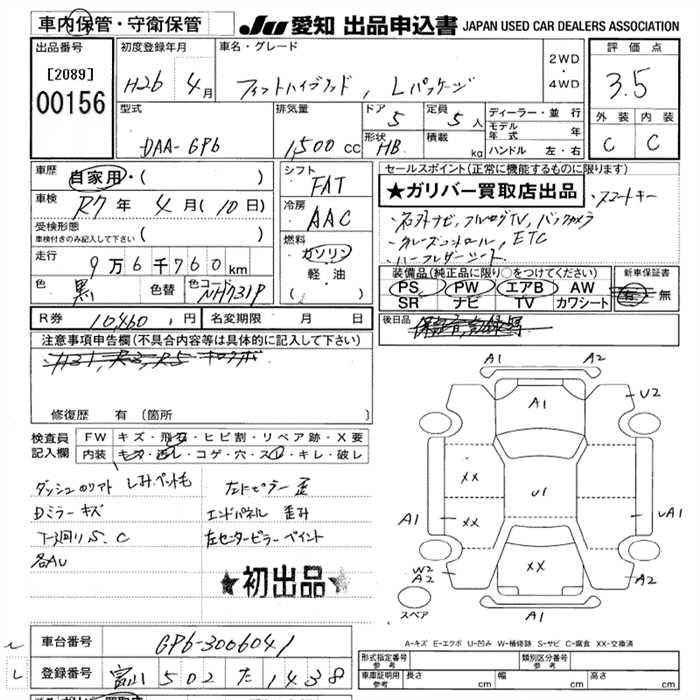 車内保管・守衛保管
JU 愛知 出品申込書 JAPAN USED CAR DEALERS ASSOCIATION
出品番号
[2089]
00156
初度登録年月
H26 4月
車名・グレード
フィットハイブリッド, Lパッケージ
2WD
・
4WD
評価点
3.5
外装 内装
C C
型式
DAA-GP6
排気量
1,500 CC
ドア 5
定員 5人
形状 HB
積載 kg
ディーラー・並行
モデル年式 年
ハンドル 左・右
車歴 自家用・( )
車検 R7年 4月(10日)
受検形態
車検付きのみ記入して下さい ( )
走行 9万6千760km
色 黒
色替
色コード NH731P
シフト FAT
冷房 AAC
燃料 ガソリン
軽・油
( )
セールスポイント(正常に機能するものに限ります)
★ガリバー買取店出品 ・スマートキー
・ネットナビ, フルセグTV, バックカメラ
・クルーズコントロール, ETC
・ハーフレザーシート
装備品(純正品に限り○をつけてください)
PS PW エアB AW
SR ナビ TV カワシート
新車保証書
有・無
R券 10460円
名変期限 月 日
後日品 保証書,記録簿
注意事項申告欄(不具合内容等は具体的に記入して下さい)
修復歴 有(箇所 )
検査員記入欄
FW キズ・飛石・ヒビ割・リペア跡・X要
内装 キズ・汚レ・コゲ・穴・スレ・キレ・破レ
ダッシュのリアト しみ.ペット毛
Dミラーキズ
下廻り S.C
各AU
左エピラー 歪
エンドパネル 歪み
左センターピラー ペイント
★初出品★
A1 A2
A1
U2
XX
XX
U1
A1
UA1
W2
A2
XX
A2
A1
スペア
A-キズ E-エクボ U-凹み W-補修跡 S-サビ C-腐食 XX-交換済
車台番号 GP6-3006041
登録番号 富山502た1438
形式指定番号 参考
類別区分番号 参考
車庫証明用 参考
長さ cm
幅 cm
高さ cm